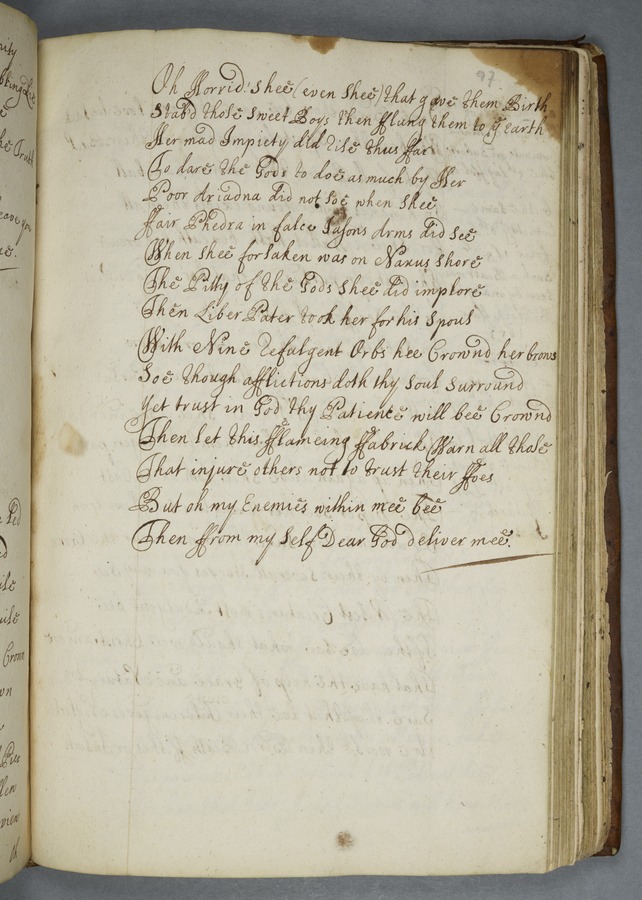 97
Oh Horrid! shee (even shee) that gave them Birth
Stab'd those sweet Boys then fflung them to ye earth
Her mad Impiety did rise thus ffar
To dare the Gods to doe as much by Her
Poor Ariadna did not soe when shee
ffair Phedra in false Jasons Arms did see
When shee forsaken was on Naxus shore
The Pitty of the Gods shee did implore
Then Liber Pater took her for his spous
With Nine refulgent Orbs hee Crown'd her brows
Soe though afflictions doth thy soul surround
Yet trust in God thy Patience will bee Crownd
Then let this fflameing ffabrick Warn all those
That injure others not to trust their ffoes
But oh my Enemies within mee bee
Then ffrom my self Dear God deliver mee.